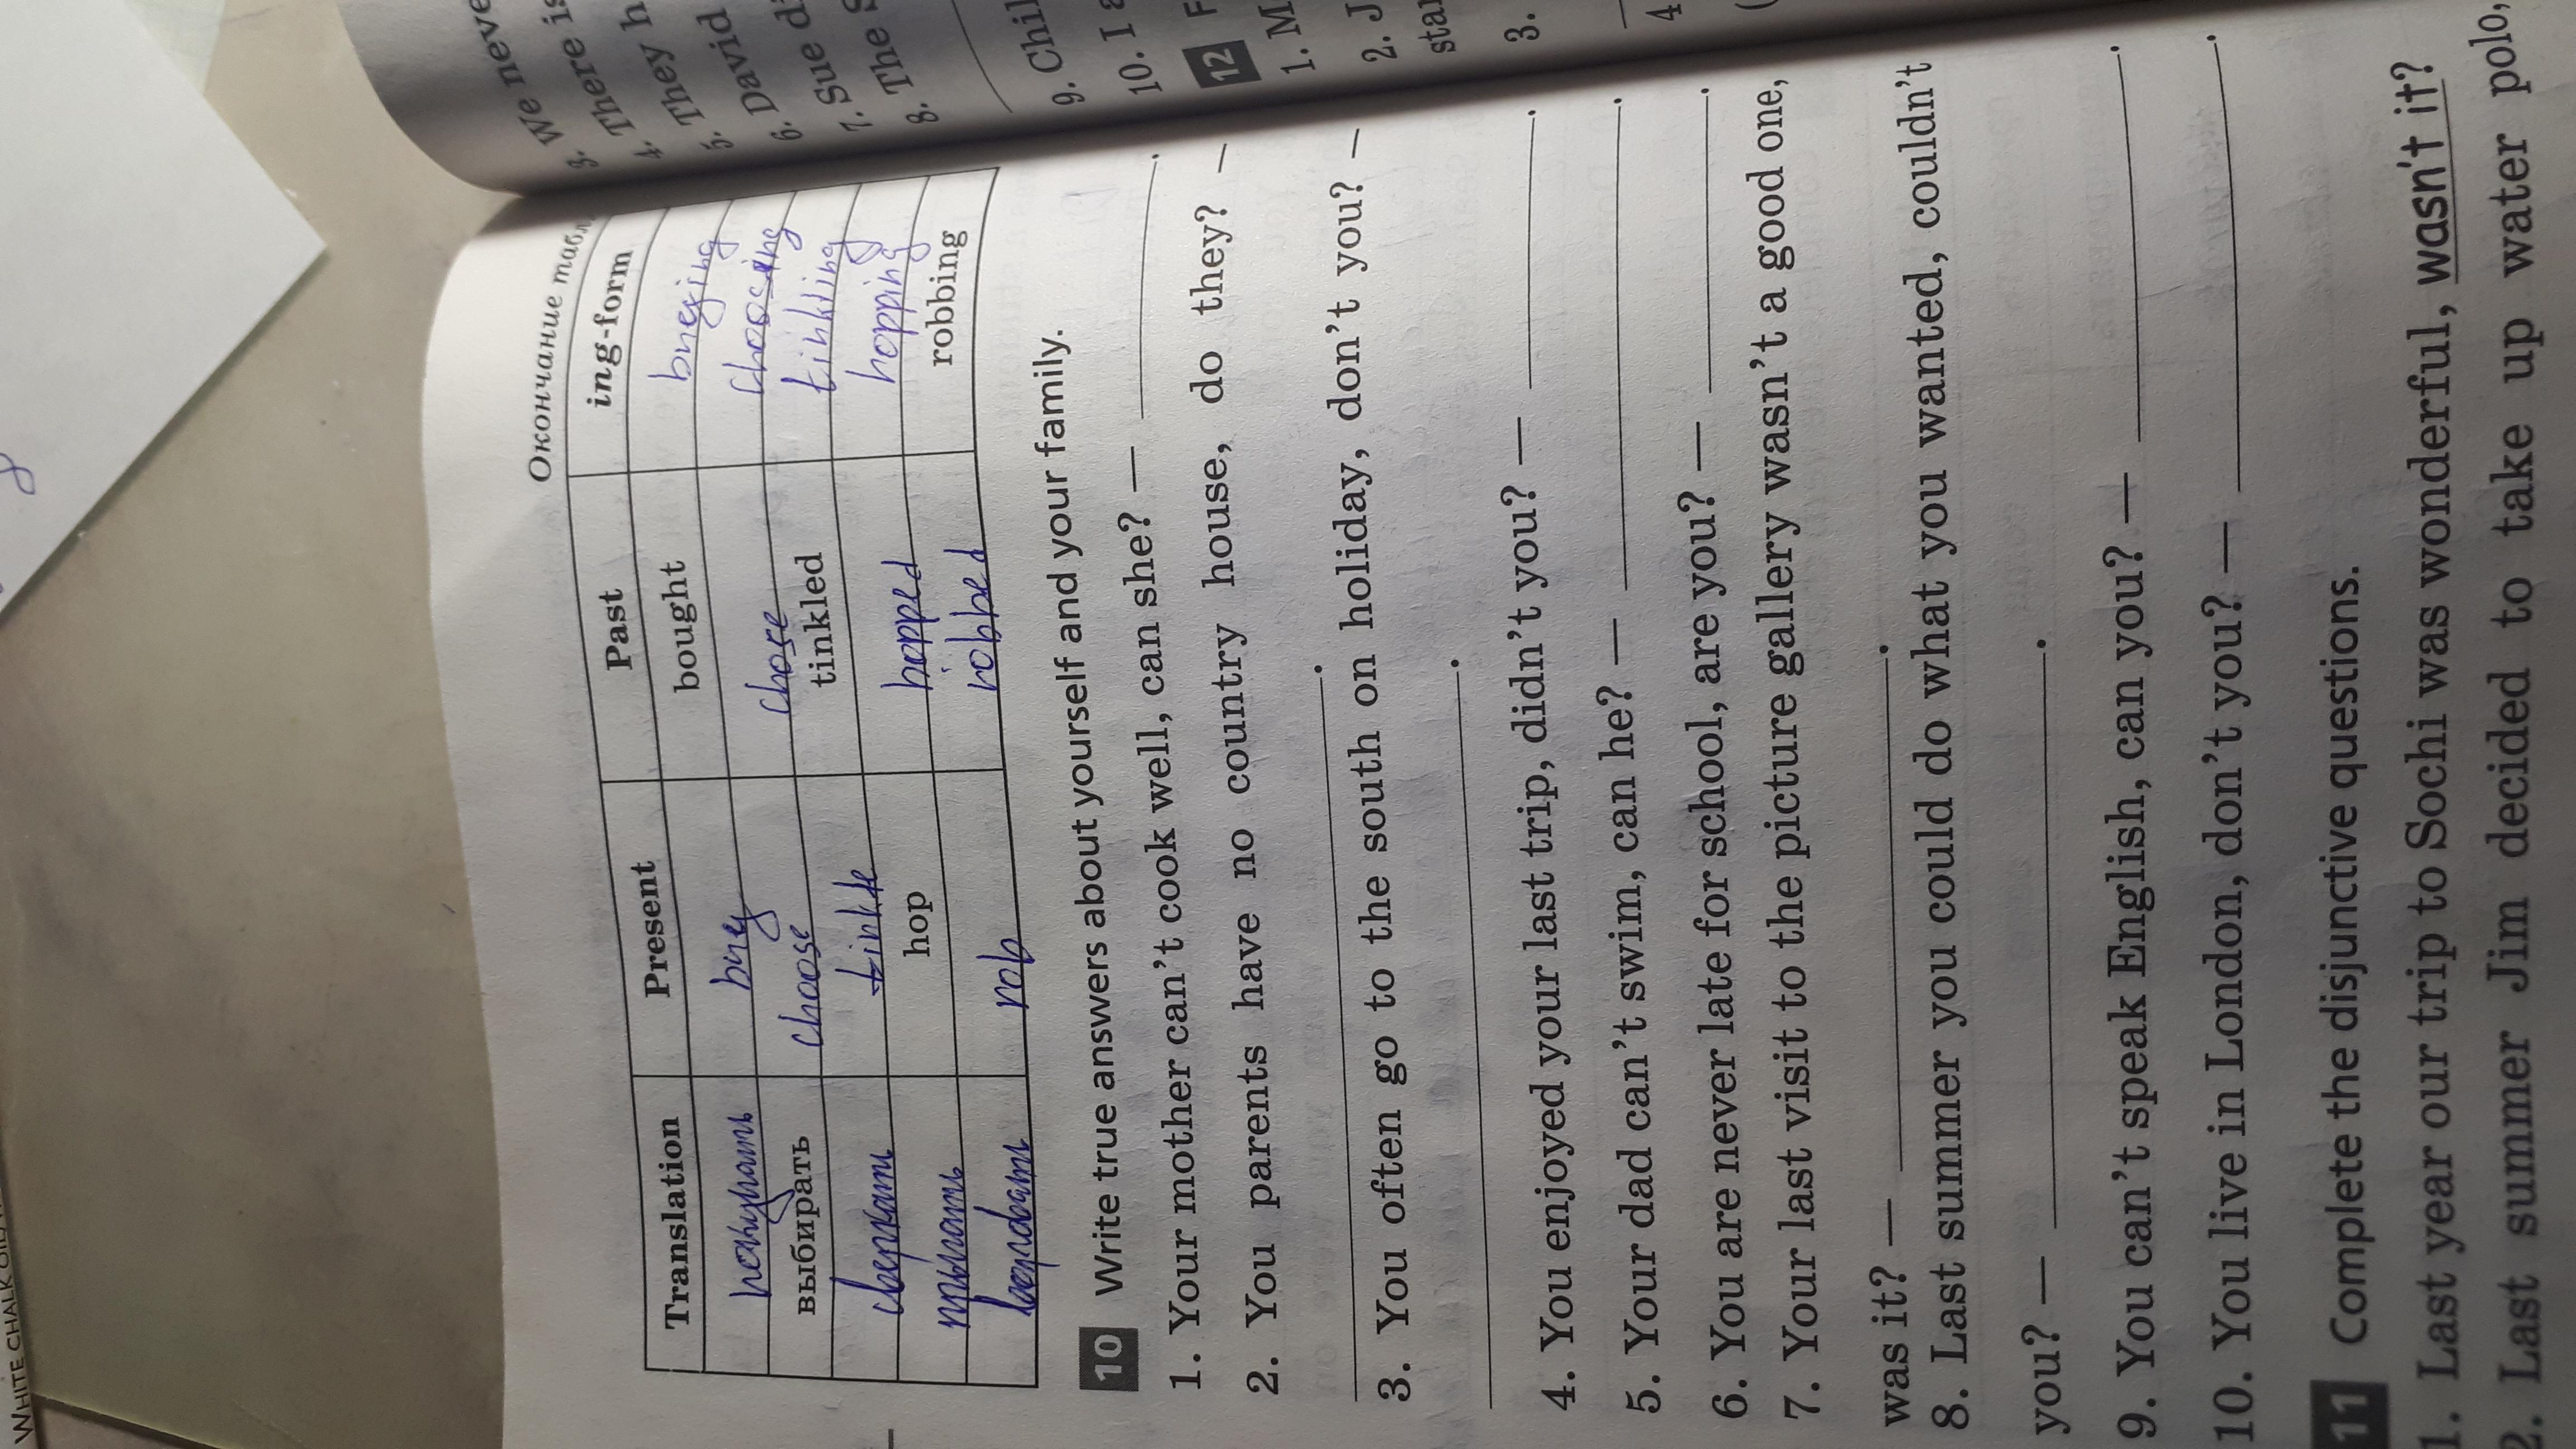 WHITE CHALK
3. We neve
4. There is
5. They h
6. David
7. Sue d
8. The S
9. Chil
10. I a
12 F
1. M
2. J
star
3.
4
Окончание табл.
Translation Present Past ing-form
покупать buy bought buying
выбирать choose chose choosing
сверкать tinkle tinkled tinkling
прыгать hop hopped hopping
воровать rob robbed robbing
10 Write true answers about yourself and your family.
1. Your mother can't cook well, can she? — .
2. You parents have no country house, do they? —
.
3. You often go to the south on holiday, don't you? —
.
4. You enjoyed your last trip, didn't you? — .
5. Your dad can't swim, can he? — .
6. You are never late for school, are you? — .
7. Your last visit to the picture gallery wasn't a good one,
was it? — .
8. Last summer you could do what you wanted, couldn't
you? — .
9. You can't speak English, can you? — .
10. You live in London, don't you? — .
11 Complete the disjunctive questions.
1. Last year our trip to Sochi was wonderful, wasn't it?
2. Last summer Jim decided to take up water polo,